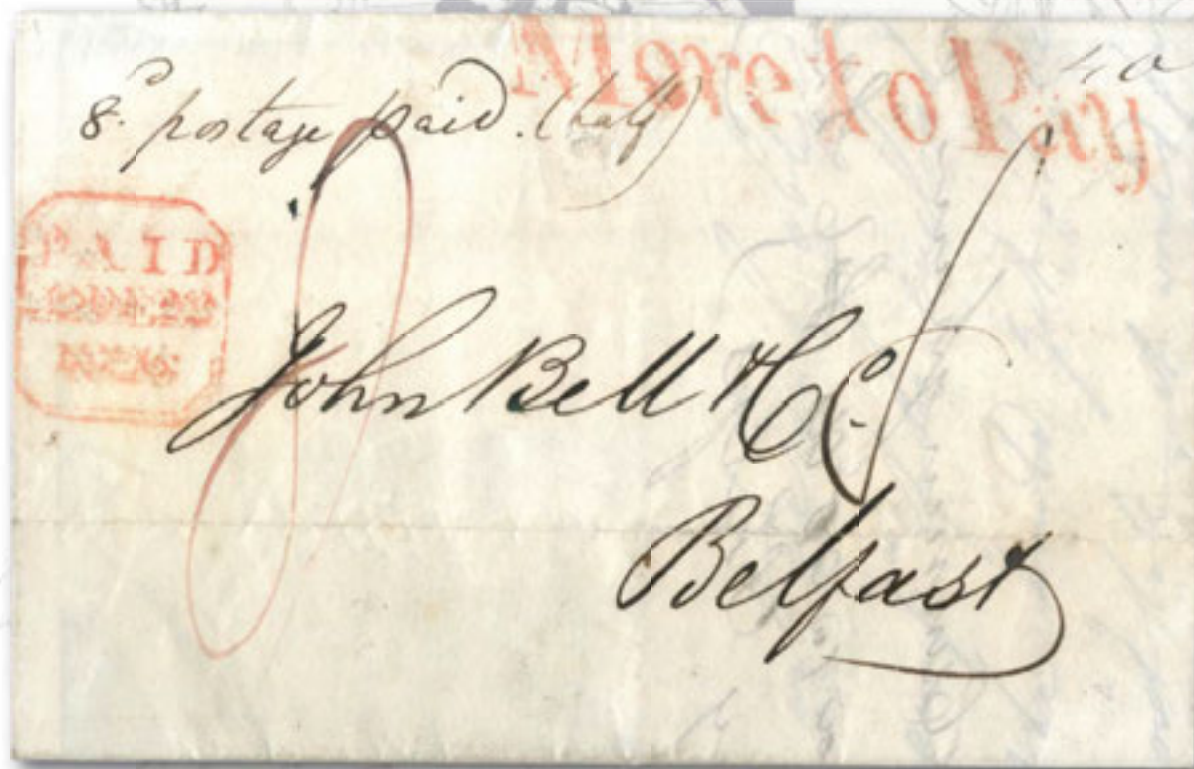 More to Pay
8d postage paid. (half)
PAID
John Bell & Co.
Belfast